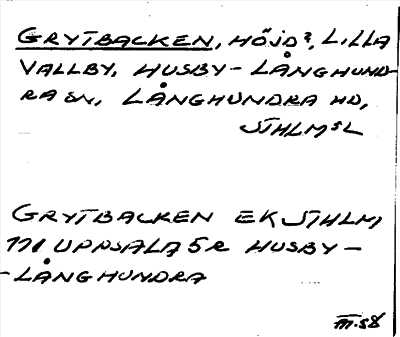 GRYTBACKEN, HÖJD?, LILLA
VALLBY, HUSBY-LÅNGHUND-
RA SN, LÅNGHUNDRA HD,
STHLMS L
GRYTBACKEN EK STHLM
111 UPPSALA 5R HUSBY-
-LÅNGHUNDRA
III.58